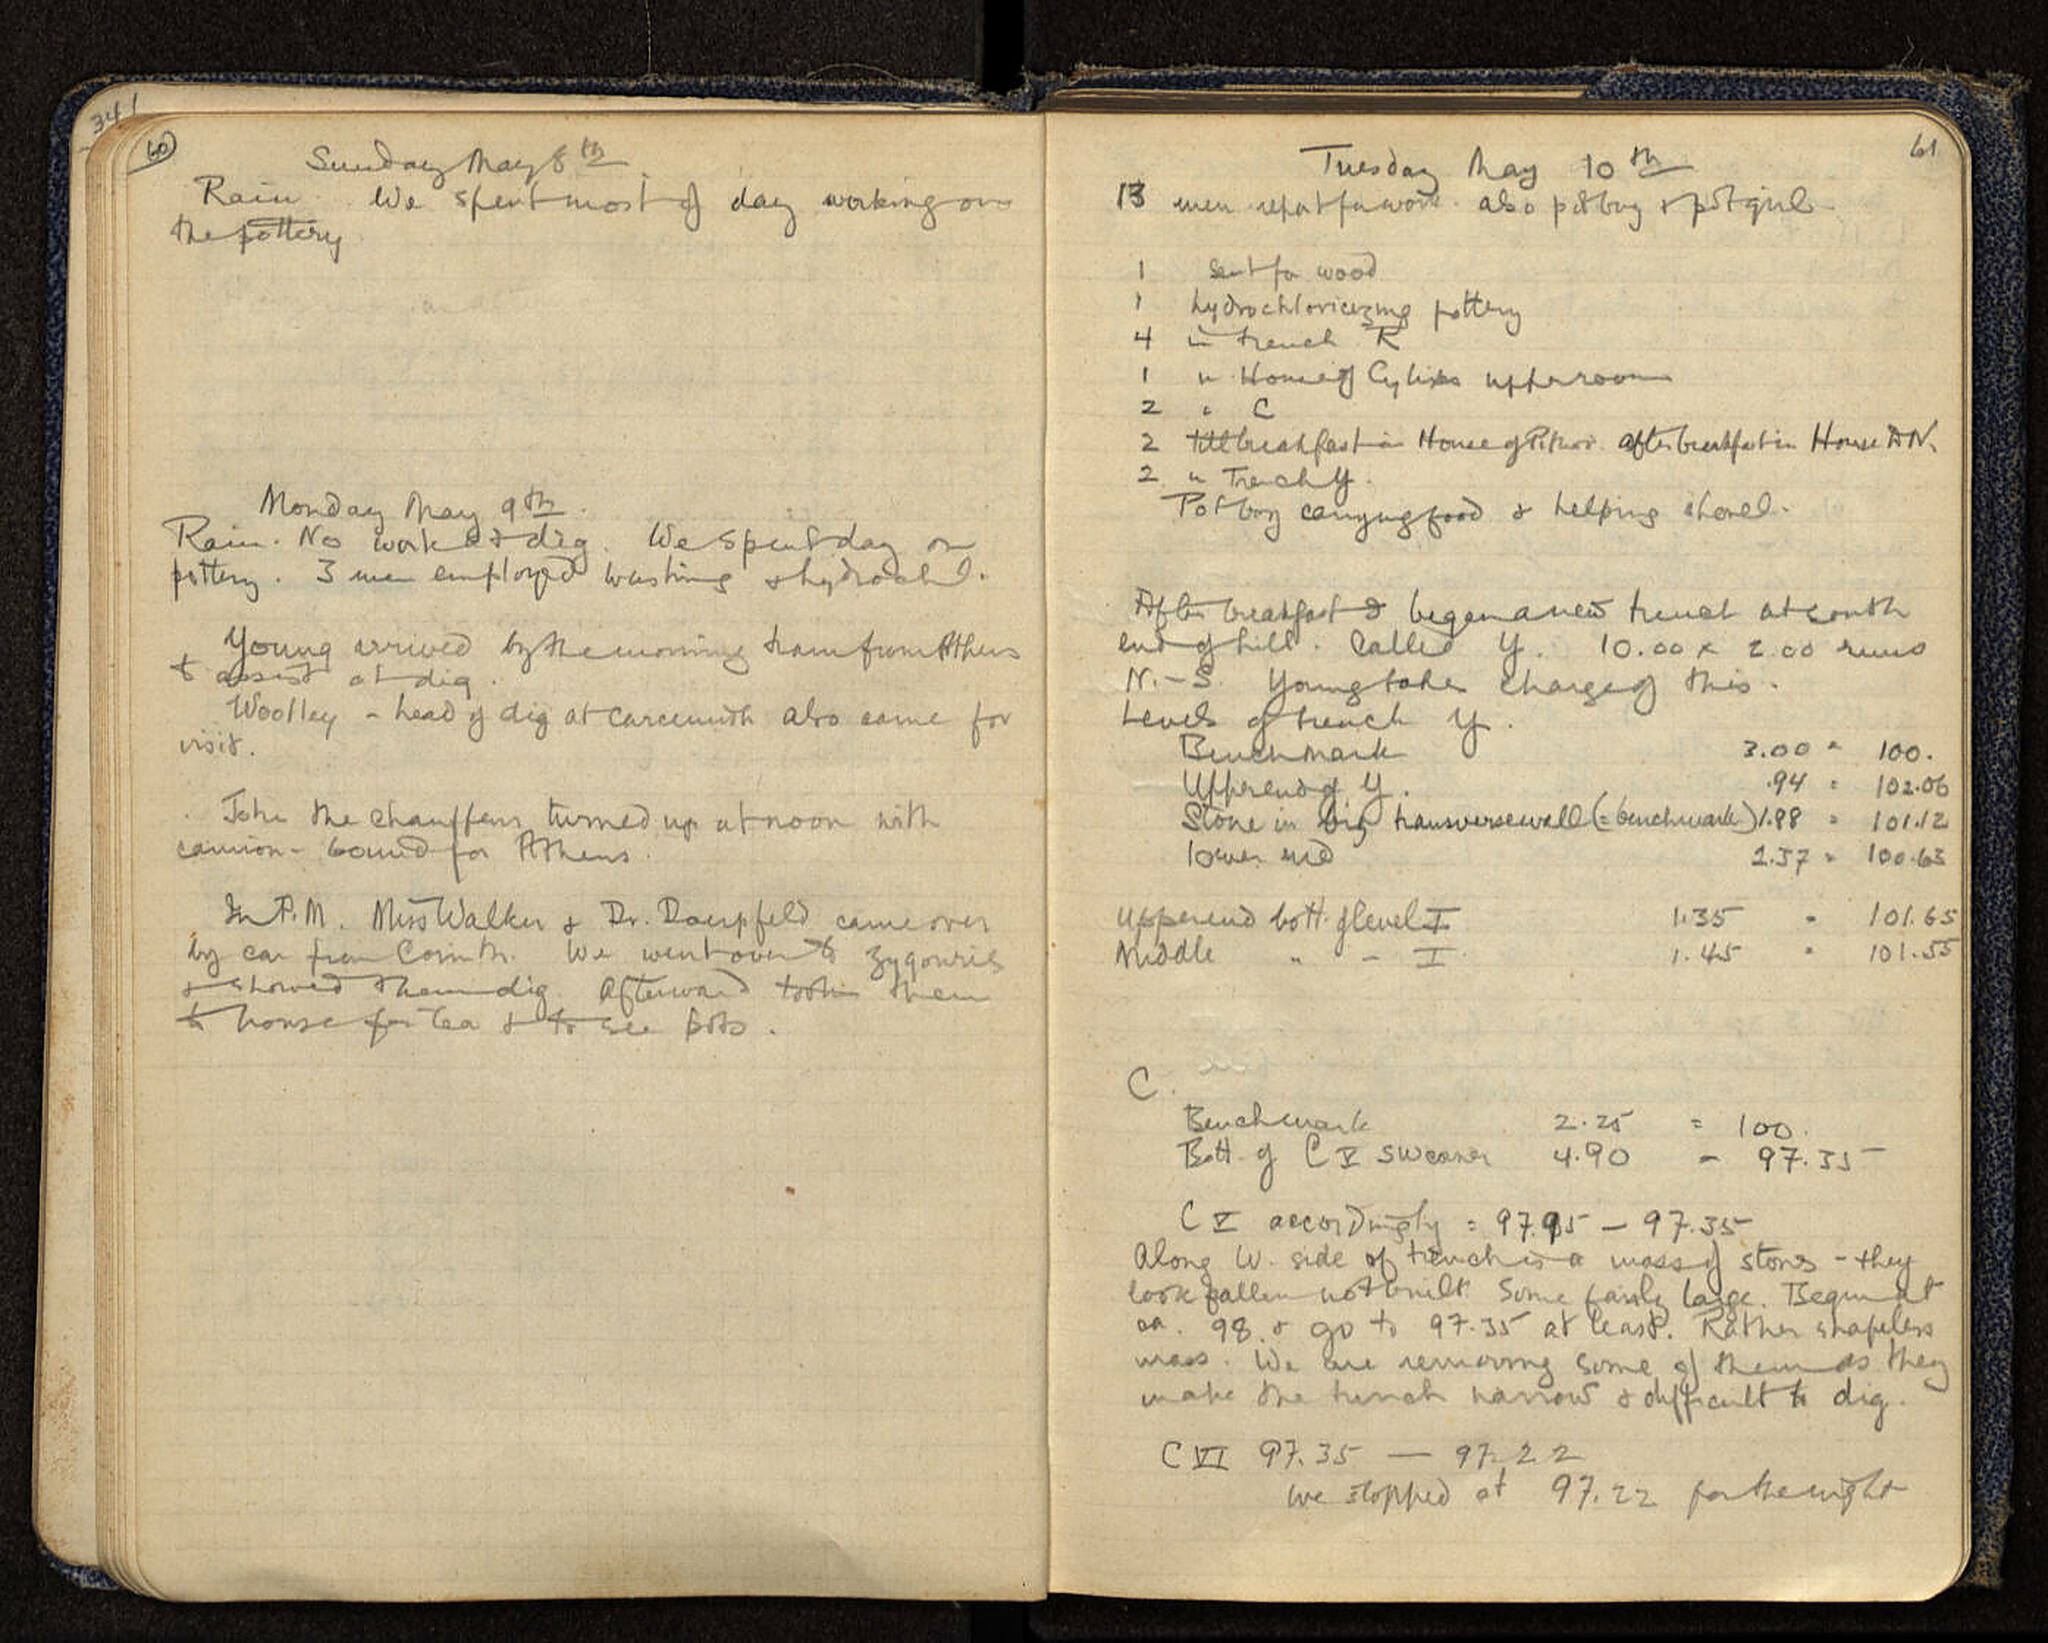 341
60
Sunday May 8th
Rain. We spent most of day working on
the pottery
Monday May 9th.
Rain. No work at dig. We spent day on
pottery. 3 men employed washing & hydrochl.
Young arrived by the morning train from Athens
to assist at dig.
Woolley - head of dig at Carcemish also came for
visit.
John the chauffeur turned up at noon with
camion - bound for Athens.
In P.M. Miss Walker & Dr. Doerpfeld came over
by car from Corinth. We went over to Zygouries
& showed them dig. Afterward took them
to house for tea & to see pots.
61
Tuesday May 10th
13 men report for work. also potboy & potgirl.
1 sent for wood
1 hydrochloricizing pottery
4 in trench R
1 " House of Cylixes upper room
2 " C
2 till breakfast in House of Pithoi. after breakfast in House DN.
2 " Trench Y.
Potboy carrying food & helping shovel.
After breakfast I began a new trench at south
end of hill. Called Y. 10.00 x 2.00 runs
N.-S. Young takes charge of this.
Levels of trench Y.
Benchmark 3.00 = 100.
Upper end of Y. .94 = 102.06
Stone in big transverse wall (= benchmark) 1.88 = 101.12
lower end 2.37 = 100.63
Upper end bott. of level I 1.35 = 101.65
Middle " - I 1.45 = 101.55
C.
Benchmark 2.25 = 100.
Bott. of C V SW corner 4.90 = 97.35
C V accordingly = 97.95 - 97.35
Along W. side of trench is a mass of stones - they
look fallen not built. Some fairly large. Begin at
ca. 98. & go to 97.35 at least. Rather shapeless
mass. We are removing some of them as they
make the trench narrow & difficult to dig.
C VI 97.35 — 97.22
We stopped at 97.22 for the night